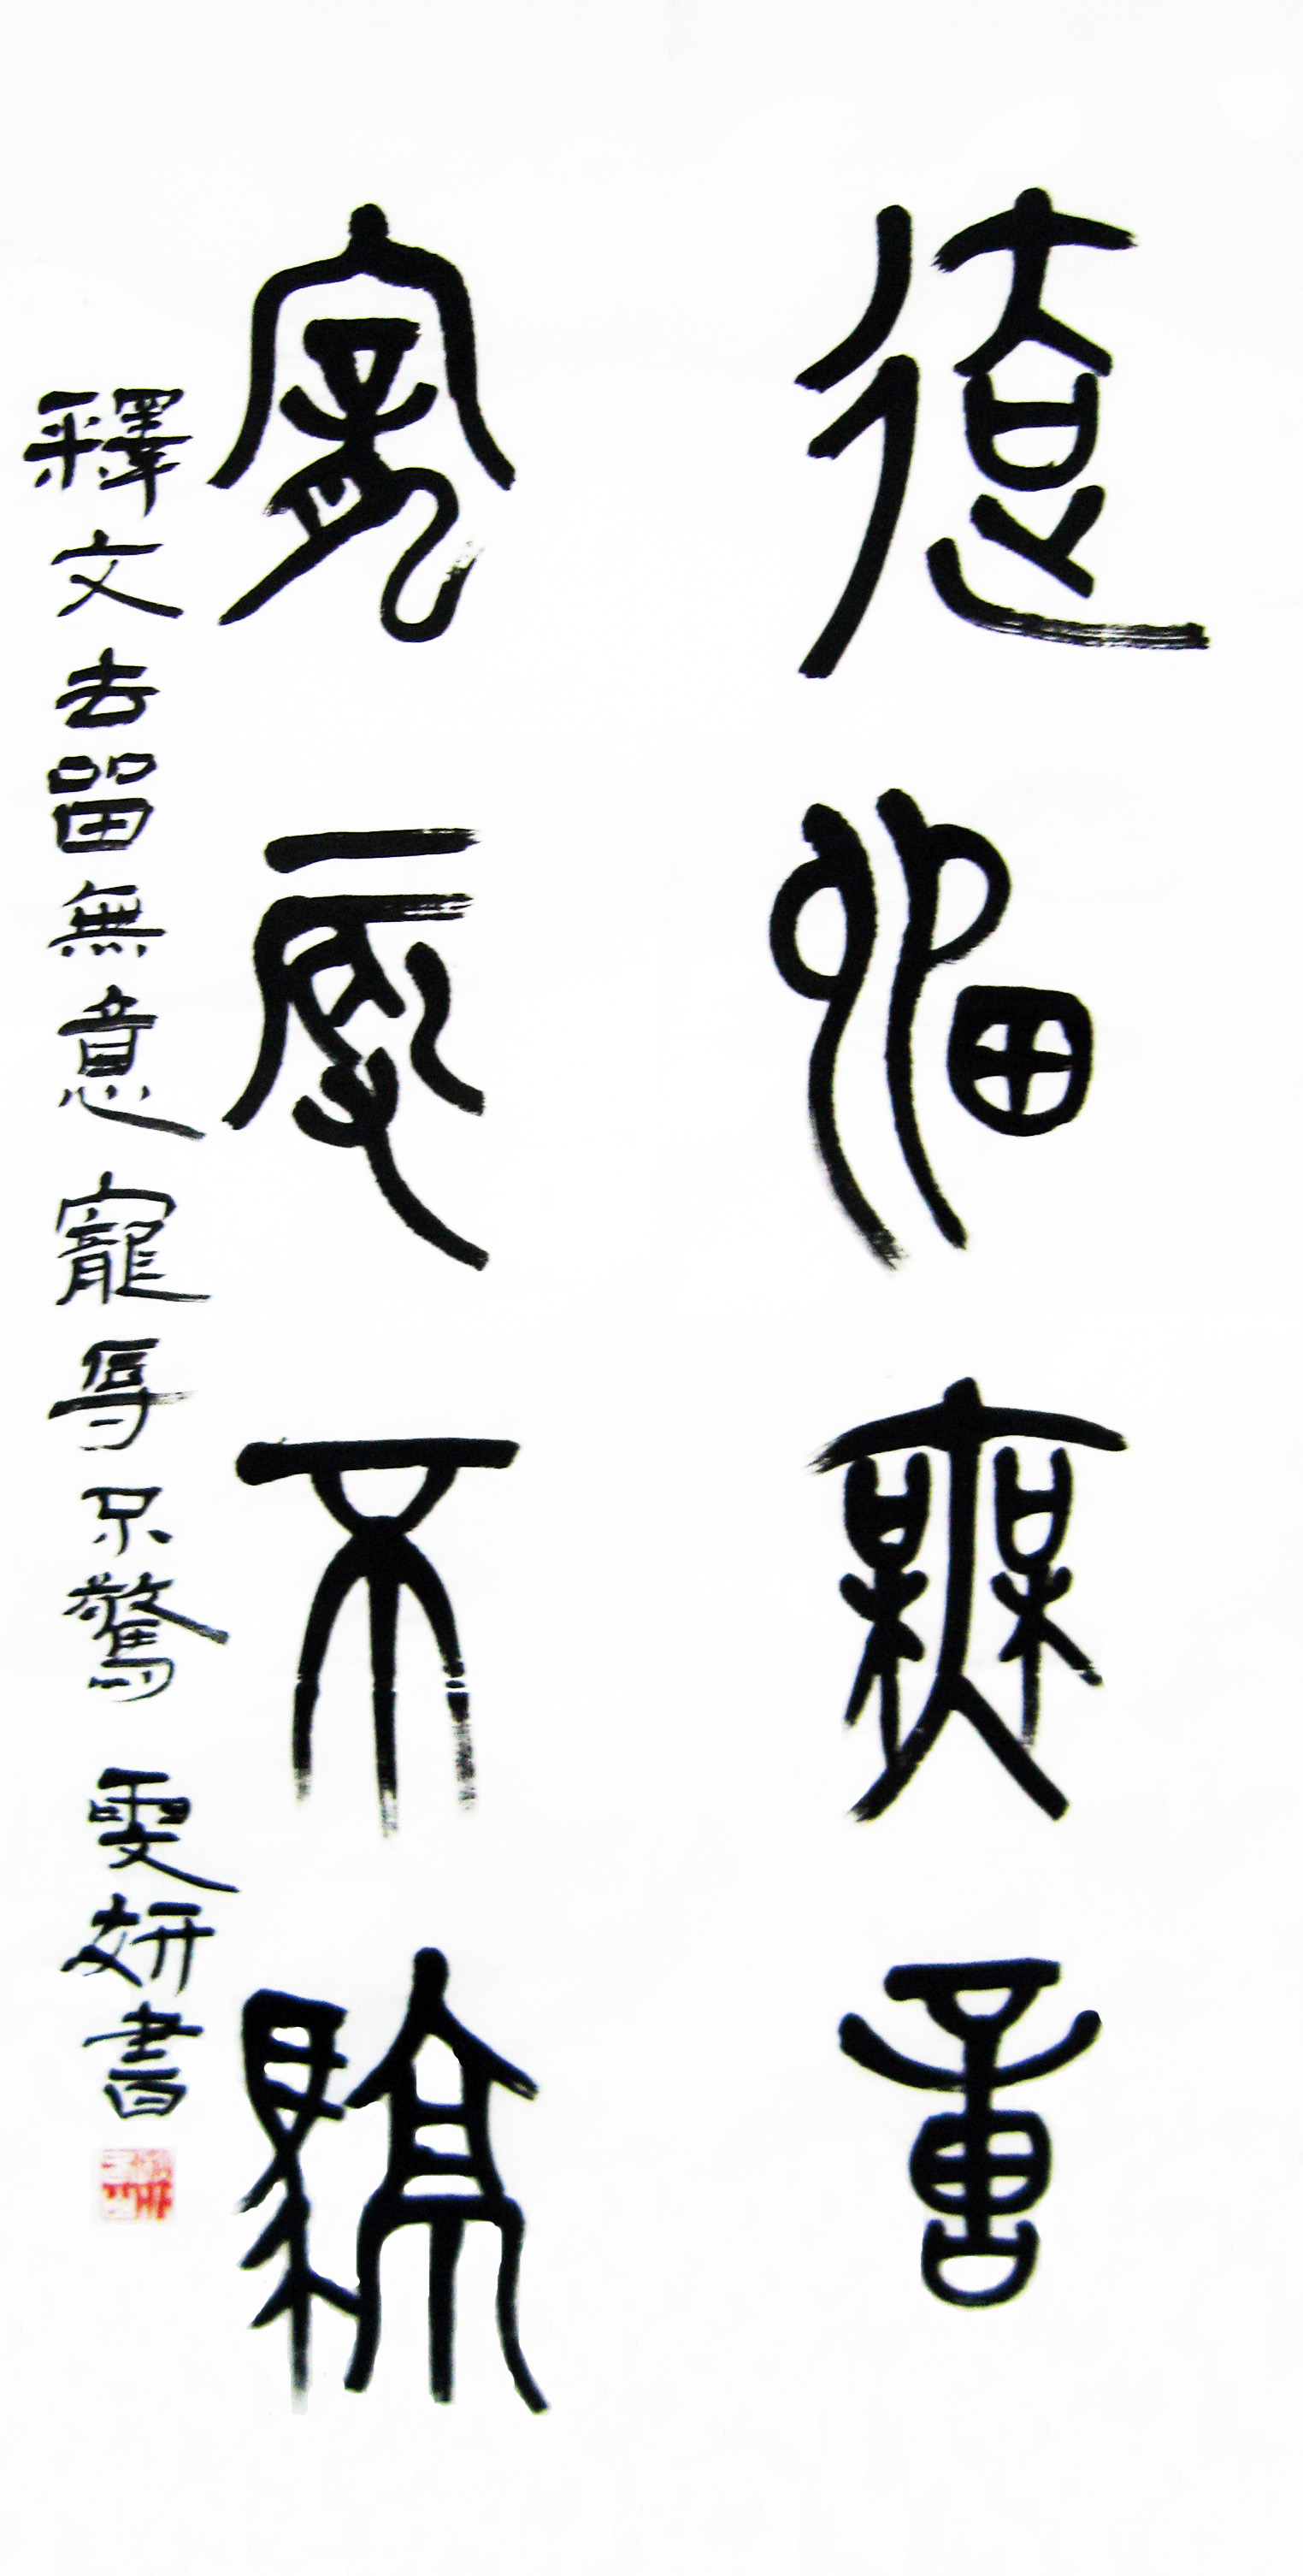 去留無意
寵辱不驚
釋文去留無意寵辱不驚 雯妍書